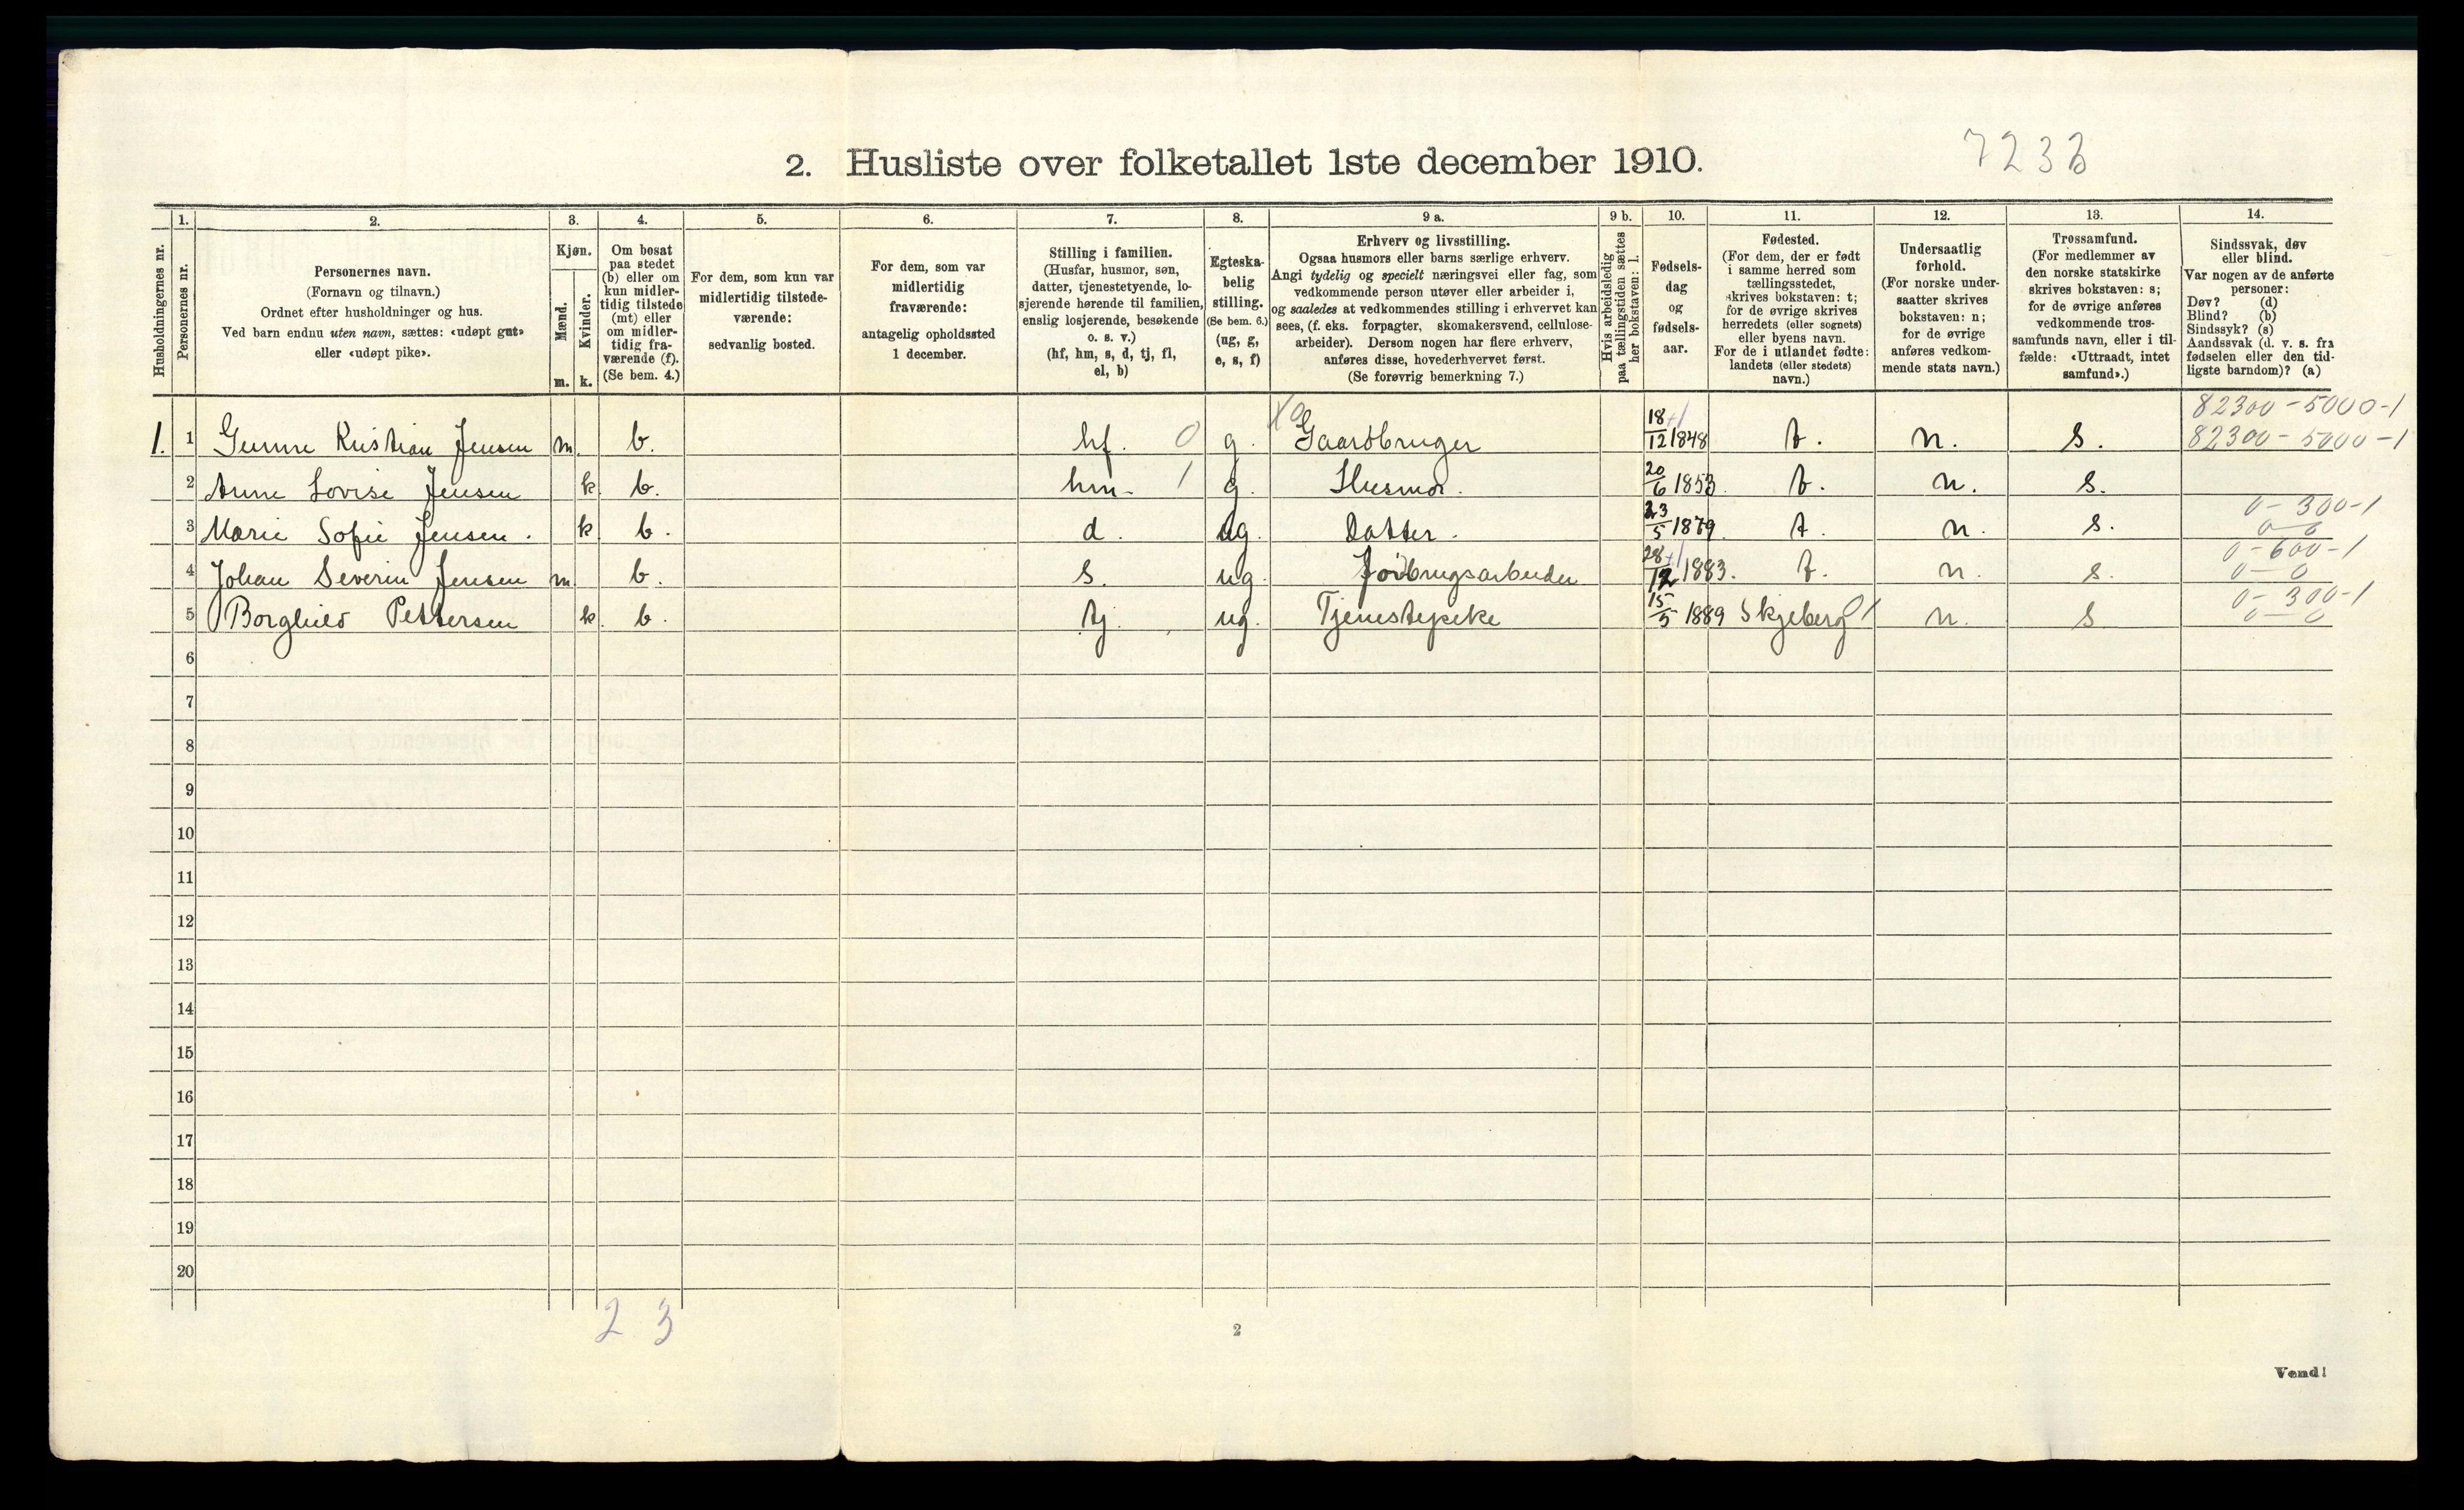 7233
2. Husliste over folketallet 1ste december 1910.
1. 2. 3. 4. 5. 6. 7. 8. 9 a. 9 b. 10. 11. 12. 13. 14.
Husholdningernes nr.
Personernes nr.
Personernes navn.
(Fornavn og tilnavn.)
Ordnet efter husholdninger og hus.
Ved barn endnu uten navn, sættes: «udøpt gut»
eller «udøpt pike».
Kjøn.
Mænd.
m.
Kvinder.
k.
Om bosat
paa stedet
(b) eller om
kun midler-
tidig tilstede
(mt) eller
om midler-
tidig fra-
værende (f).
(Se bem. 4.)
For dem, som kun var
midlertidig tilstede-
værende:
sedvanlig bosted.
For dem, som var
midlertidig
fraværende:
antagelig opholdssted
1 december.
Stilling i familien.
(Husfar, husmor, søn,
datter, tjenestetyende, lo-
sjerende hørende til familien,
enslig losjerende, besøkende
o. s. v.)
(hf, hm, s, d, tj, fl,
el, b)
Egteska-
belig
stilling.
(Se bem. 6.)
(ug, g,
e, s, f)
Erhverv og livsstilling.
Ogsaa husmors eller barns særlige erhverv.
Angi tydelig og specielt næringsvei eller fag, som
vedkommende person utøver eller arbeider i,
og saaledes at vedkommendes stilling i erhvervet kan
sees, (f. eks. forpagter, skomakersvend, cellulose-
arbeider). Dersom nogen har flere erhverv,
anføres disse, hovederhvervet først.
(Se forøvrig bemerkning 7.)
Hvis arbeidsledig
paa tællingstiden sættes
her bokstaven: l.
Fødsels-
dag
og
fødsels-
aar.
Fødested.
(For dem, der er født
i samme herred som
tællingsstedet,
skrives bokstaven: t;
for de øvrige skrives
herredets (eller sognets)
eller byens navn.
For de i utlandet fødte:
landets (eller stedets)
navn.)
Undersaatlig
forhold.
(For norske under-
saatter skrives
bokstaven: n;
for de øvrige
anføres vedkom-
mende stats navn.)
Trossamfund.
(For medlemmer av
den norske statskirke
skrives bokstaven: s;
for de øvrige anføres
vedkommende tros-
samfunds navn, eller i til-
fælde: «Uttraadt, intet
samfund».)
Sindssvak, døv
eller blind.
Var nogen av de anførte
personer:
Døv? (d)
Blind? (b)
Sindssyk? (s)
Aandssvak (d. v. s. fra
fødselen eller den tid-
ligste barndom)? (a)
82300-5000-1
1. 1 Gunne Kristian Jensen m. b. hf. 0 g. Gaardbruger 18/12 1848 t. n. s. 82300-5000-1
2 Anne Lovise Jensen k. b. hm. 1 g. Husmor. 20/6 1853. t. n. s.
0-300-1
3 Marie Sofie Jensen. k b. d. ug. Datter. 23/5 1879. t. n. s. 0-0
0-600-1
4 Johan Severin Jensen m. b. s. ug. Jordbrugsarbeider 28/12 1883. t. n. s. 0-0
0-300-1
5 Borghild Pettersen k. b. tj. ug. Tjenestepike 15/5 1889 Skjeberg 01 n. s 0-0
6
7
8
9
10
11
12
13
14
15
16
17
18
19
20
2 3
2
Vend!